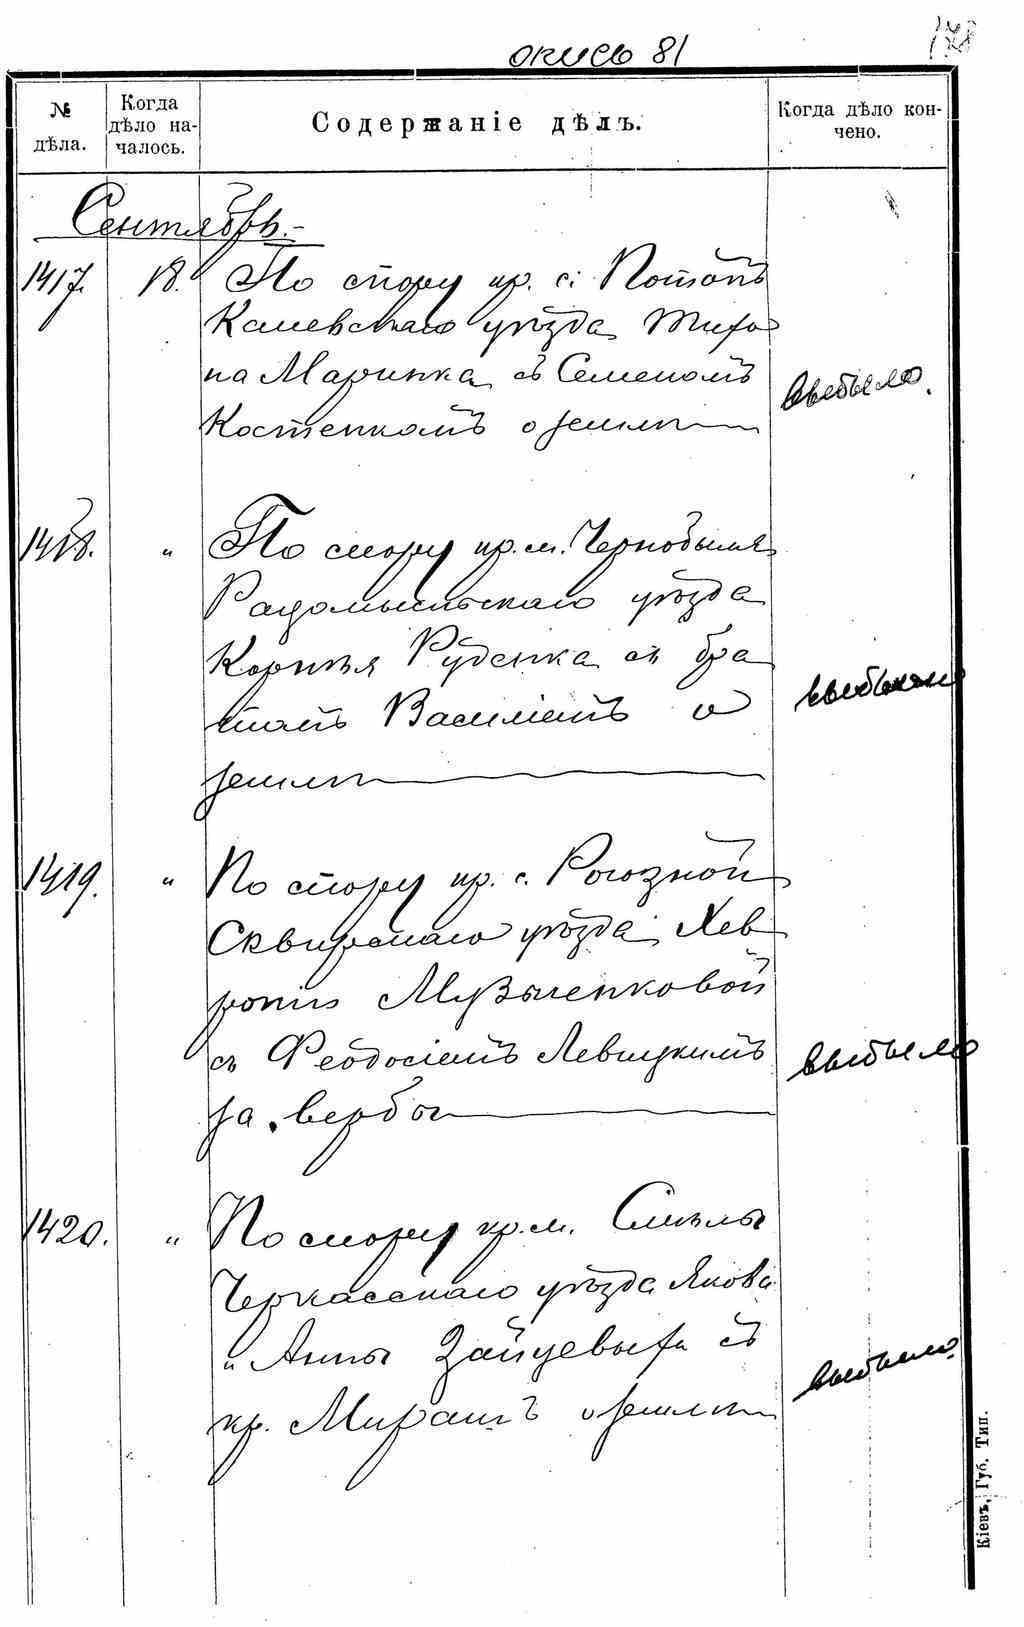 опись 81
178
№ дѣла.
Когда дѣло на-
чалось.
Содержаніе дѣлъ.
Когда дѣло кон-
чено.
Сентябрь.-
1417. 18. По спору кр. с. Потокъ
Каневскаго уѣзда Тихо
на Маринка съ Семеномъ
Костенкомъ о землѣ
выбыло.
1418. " По спору кр. м. Чернобыля
Радомысльскаго уѣзда
Корнія Руденка съ бра
томъ Василіемъ о
землѣ
выбыло
1419. " По спору кр. с. Рогозной
Сквирскаго уѣзда Хев
роніи Музыченковой
съ Феодосіемъ Левицкимъ
за вербы
выбыло
1420. " По спору кр. м. Смѣлы
Черкасскаго уѣзда Якова
и Анны Зайцевыхъ съ
кр. о землѣ
выбыло.
Кіевъ, Губ. Тип.